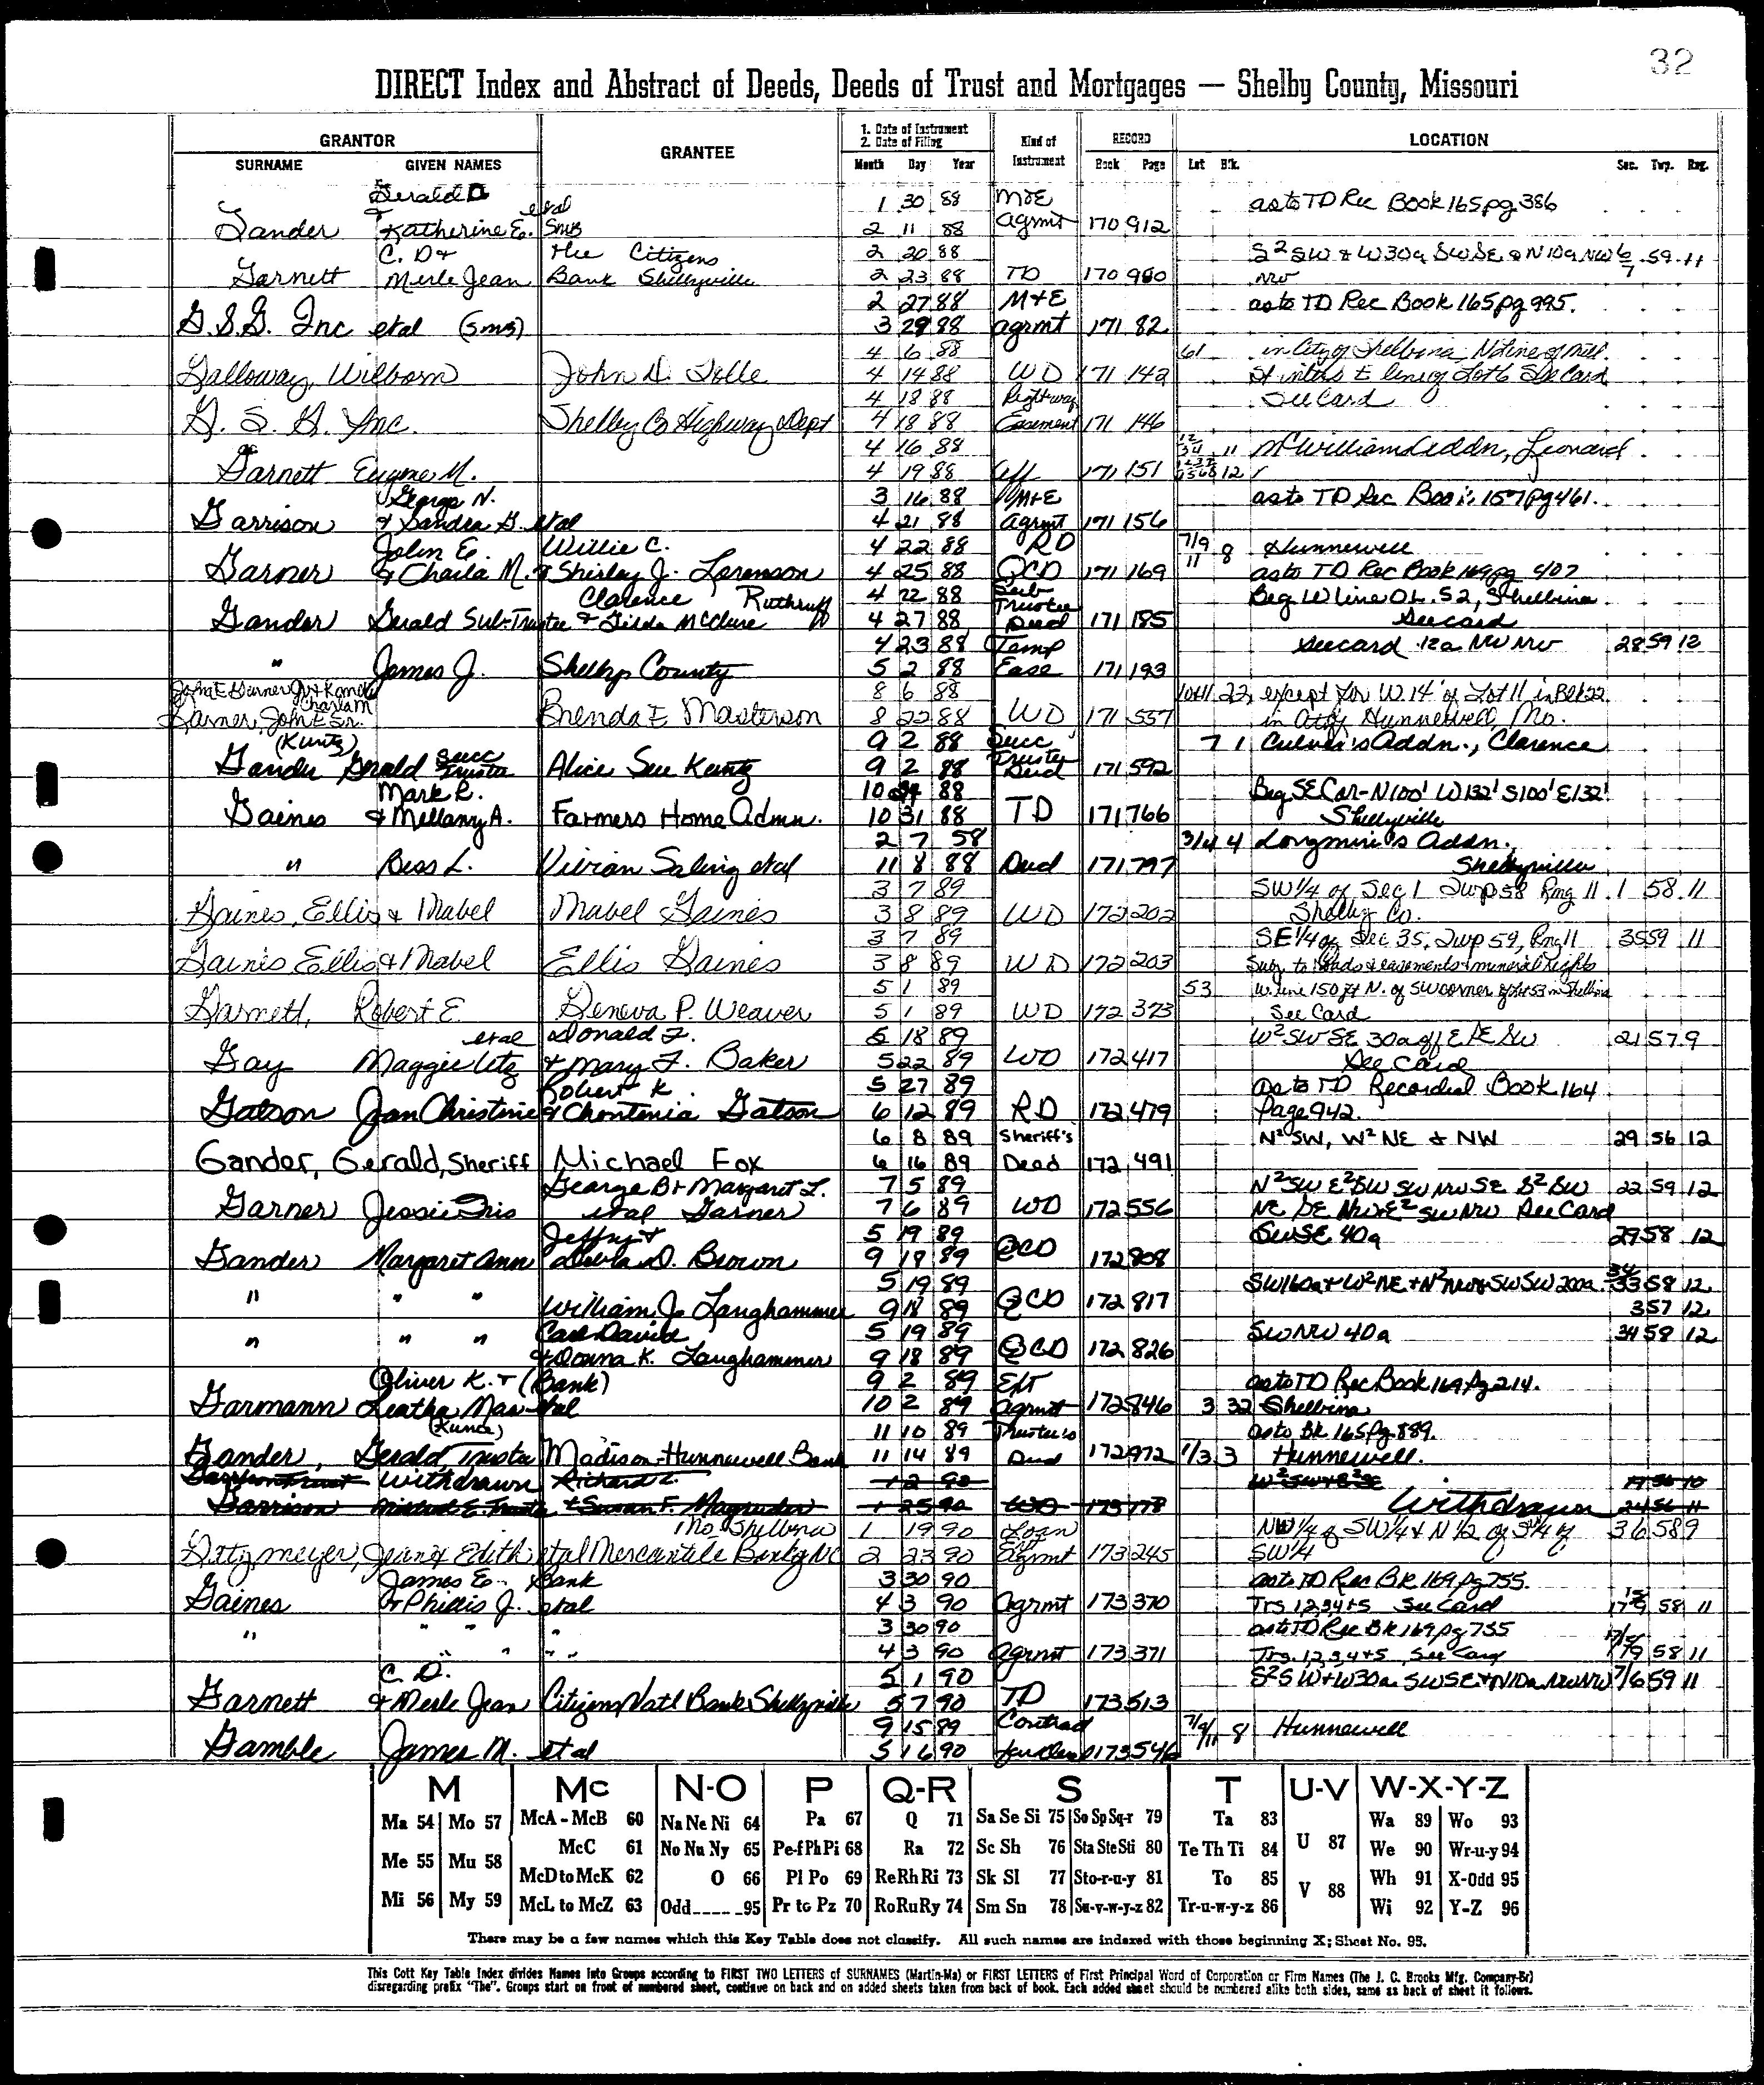 32
DIRECT Index and Abstract of Deeds, Deeds of Trust and Mortgages — Shelby County, Missouri
GRANTOR GRANTEE 1. Date of Instrument 2. Date of Filing Kind of Instrument RECORD LOCATION
SURNAME GIVEN NAMES Month Day Year Book Page Lot Blk. Sec. Twp. Rng.
Gerald D etal 1 30 88 M&E as to TD Rec Book 165 pg 386
Gander & Katherine E. SMB 2 11 88 Agmt 170 912
C. D & the Citizens 2 20 88 S2 SW & W30a SWSE & N10a NW 6/7 59 11
Garnett Merle Jean Bank Shelbyville 2 23 88 TD 170 980 NW
2 27 88 M+E as to TD Rec Book 165 pg 995.
G.S.G. Inc etal (SMB) 3 29 88 agrmt 171 82
4 6 88 61 in City of Shelbina, N line of Mill
Galloway, Wilborn John D. Tolle 4 14 88 WD 171 142 St inters E line of Lot 6 See Card
4 18 88 Right way See Card
G. S. G. Inc. Shelby Co Highway Dept 4 18 88 Easement 171 146
4 16 88 11 McWilliams Addn, Leonard
Garnett Eugene M. 4 19 88 Aff 171 151 12
George N. 3 16 88 M+E as to TD Rec Book 157 pg 461.
Garrison & Sandra G. etal 4 21 88 agrmt 171 156
John E. Willie C. 4 22 88 RD 7/9 11 8 Hunnewell
Garner & Charla M. & Shirley J. Lorenson 4 25 88 QCD 171 169 as to TD Rec Book 169 pg 407
Clarence Ruthruff 4 22 88 Sub Trustee Beg W line OL. 52, Shelbina
Gander Gerald Sub-Trustee & Gilda McClure 4 27 88 Deed 171 185 See card
4 23 88 Temp See card .12a NW NW 28 59 12
" James J. Shelby County 5 2 88 Ease 171 193
John E Garner Jr & Charla M 8 6 88 10&11 22 except for W. 14' of Lot 11 in Blk 22
Garner, John E Sr. Brenda E Masterson 8 22 88 WD 171 557 in City Hunnewell, Mo.
(Kuntz) 9 2 88 Succ 7 1 Culver's Addn., Clarence
Gander Gerald Succ Trustee Alice Sue Kuntz 9 2 88 Trustee Deed 171 592
Mark R. 10 88 Beg SE Cor-N100' W132' S100' E132'
Gaines & Mellany A. Farmers Home Admn. 10 31 88 TD 171 766 Shelbyville
2 7 58 3/4 4 Longmire's Addn.,
" Bess L. Vivian Saling etal 11 8 88 Deed 171 797 Shelbyville
3 7 89 SW 1/4 of Sec 1 Twp 58 Rng 11 1 58 11
Gaines, Ellis & Mabel Mabel Gaines 3 8 89 WD 172 202 Shelby Co.
3 7 89 SE 1/4 of Sec 35, Twp 59, Rng 11 35 59 11
Gaines Ellis & Mabel Ellis Gaines 3 8 89 WD 172 203 Subj to Roads & easements & mineral rights
5 1 89 53 W. line 150 ft N. of SW corner of Lot 53 in Shelbina
Garnett, Robert E. Geneva P. Weaver 5 1 89 WD 172 373 See Card
etal Donald F. 5 18 89 W2 SW SE 30a off E SE SW 21 57 9
Gay Maggie Utz & Mary F. Baker 5 22 89 WD 172 417 See Card
Robert K. 5 27 89 as to TD Recorded Book 164
Gatson Jean Christine & Chontenia Gatson 6 12 89 RD 172 479 Page 942.
6 8 89 Sheriff's N2 SW, W2 NE & NW 29 56 12
Gander, Gerald, Sheriff Michael Fox 6 16 89 Deed 172 491
George B & Margaret L. 7 5 89 N2SW E2SW SW NW SE S2 SW 22 59 12
Garner Jessie Iris etal Garner 7 6 89 WD 172 556 NE SE NW & E2 SW NW See Card
Jeffry & 5 19 89 SWSE 40a 29 58 12
Gander Margaret Ann Debra D. Brown 9 18 89 QCD 172 808
5 19 89 SW160a & W2 NE & N2 NW & SW SW 200a 34/33 58 12
" " " William J. Langhammer 9 18 89 QCD 172 817 3 57 12
" " " Carl David 5 19 89 SWNW 40a 34 58 12
& Donna K. Langhammer 9 18 89 QCD 172 826
Oliver K. & (Bank) 9 2 89 Ext as to TD Rec Book 169 Pg 214.
Garmann Leatha Mae etal 10 2 89 agrmt 172 846 3 32 Shelbina
(Kunce) 11 10 89 Trustees as to Bk 165 Pg 889.
Gander, Gerald, Trustee Madison-Hunnewell Bank 11 14 89 Deed 172 972 1/3 3 Hunnewell.
Withdrawn Richard L. 1 2 90 W2 SW & S2 SE 19 56 10
Garrison Mildred E. Trustee & Susan F. Magruder 1 25 90 WD 173 178 Withdrawn 24 56 11
Mo. Shelbina 1 19 90 Loan NW 1/4 of SW 1/4 & N 1/2 of SW 1/4 of 36 58 9
Jean & Edith etal Mercantile Bank of NC 2 23 90 Agmt 173 245 SW 1/4
James E. Bank 3 30 90 as to TD Rec Bk 169 Pg 755.
Gaines & Phillis J. etal 4 3 90 agrmt 173 370 Trs 1,2,3,4 & 5 See Card 58 11
" " " " 3 30 90 as to TD Rec Bk 169 Pg 755
4 3 90 agrmt 173 371 Trs. 1,2,3,4 & 5 See Card 58 11
C. D. 5 1 90 S2S W & W30a SWSE & N10a NWNW 7/6 59 11
Garnett & Merle Jean Citizens Natl Bank Shelbyville 5 7 90 TD 173 513
9 15 89 Contract 7/9/11 8 Hunnewell
Gamble James M. etal 5 16 90 for Deed 173 546
M Mc N-O P Q-R S T U-V W-X-Y-Z
Ma 54 Mo 57 McA - McB 60 Na Ne Ni 64 Pa 67 Q 71 Sa Se Si 75 So Sp Sq-r 79 Ta 83 U 87 Wa 89 Wo 93
Me 55 Mu 58 McC 61 No Nu Ny 65 Pe-f Ph Pi 68 Ra 72 Sc Sh 76 Sta Ste Sti 80 Te Th Ti 84 We 90 Wr-u-y 94
McD to McK 62 O 66 Pl Po 69 Re Rh Ri 73 Sk Sl 77 Sto-r-u-y 81 To 85 V 88 Wh 91 X-Odd 95
Mi 56 My 59 McL to McZ 63 Odd 95 Pr to Pz 70 Ro Ru Ry 74 Sm Sn 78 Su-v-w-y-z 82 Tr-u-w-y-z 86 Wi 92 Y-Z 96
There may be a few names which this Key Table does not classify. All such names are indexed with those beginning X; Sheet No. 95.
This Cott Key Table Index divides Names Into Groups according to FIRST TWO LETTERS of SURNAMES (Martin-Ma) or FIRST LETTERS of First Principal Word of Corporation or Firm Names (The J. C. Brooks Mfg. Company-Br)
disregarding prefix "The". Groups start on front of numbered sheet, continue on back and on added sheets taken from back of book. Each added sheet should be numbered alike both sides, same as back of sheet it follows.